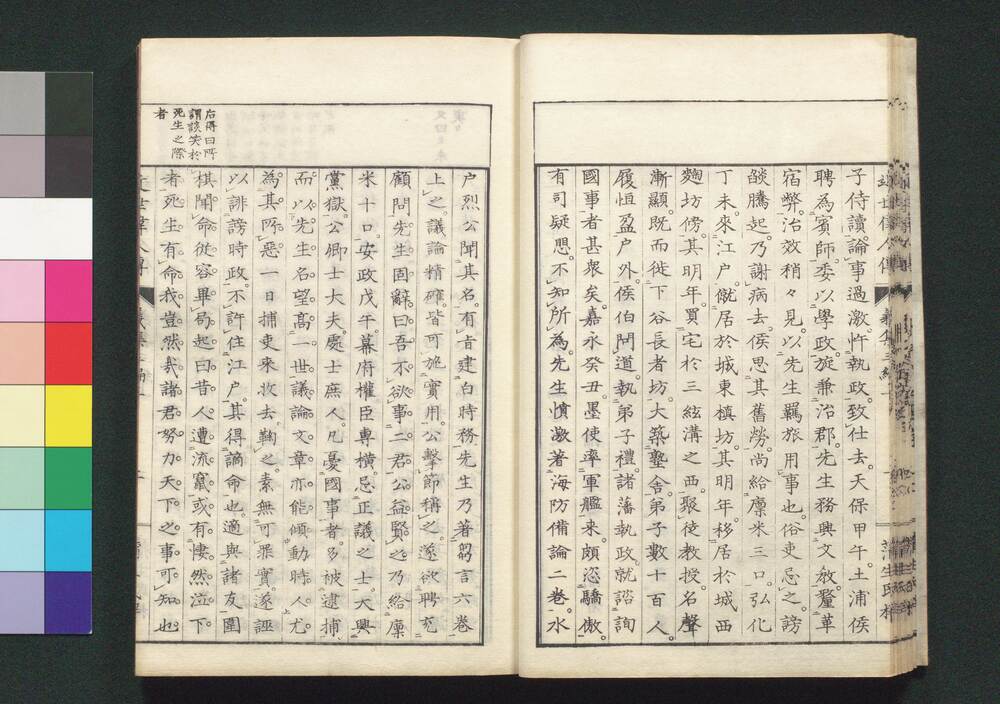 子侍讀論事過激忤執政致仕去天保甲午土浦侯
聘為賓師委以學政旋兼治郡先生務興文教釐革
宿弊治效稍々見以先生羈旅用事也俗吏忌之謗
燄騰起乃謝病去侯思其舊勞尚給廩米三口弘化
丁未來江戸僦居於城東槙坊其明年移居於城西
麴坊傍其明年買宅於三絃溝之西聚徒教授名聲
漸顯既而徙下谷長者坊大築塾舍弟子數十百人
履恒盈户外侯伯問道執弟子禮諸藩執政就諮詢
國事者甚衆矣嘉永癸丑墨使率軍艦来頗恣驕傲
有司疑思不知所為先生憤激著海防備論二卷水
户烈公聞其名有肯建白時務先生乃著芻言六卷
上之議論精確皆可施實用公擊節稱之遂欲聘充
顧問先生固辭曰吾不欲事二君公益賢之乃給廩
米十口安政戊午幕府權臣專横忌正議之士大興
黨獄公卿士大夫處士庶人凡憂國事者多被逮捕
而以先生名望高一世議論文章亦能傾動時人尤
為其所惡一日捕吏来收去鞠之素無可罪實遂誣
以誹謗時政不許住江户其得謫命也適與諸友圍
棋聞命從容畢局起曰昔人遭流竄或有悽然泣下
者死生有命我豈然哉諸君努力天下之事可知也
后得曰所
謂談笑於
死生之際
者